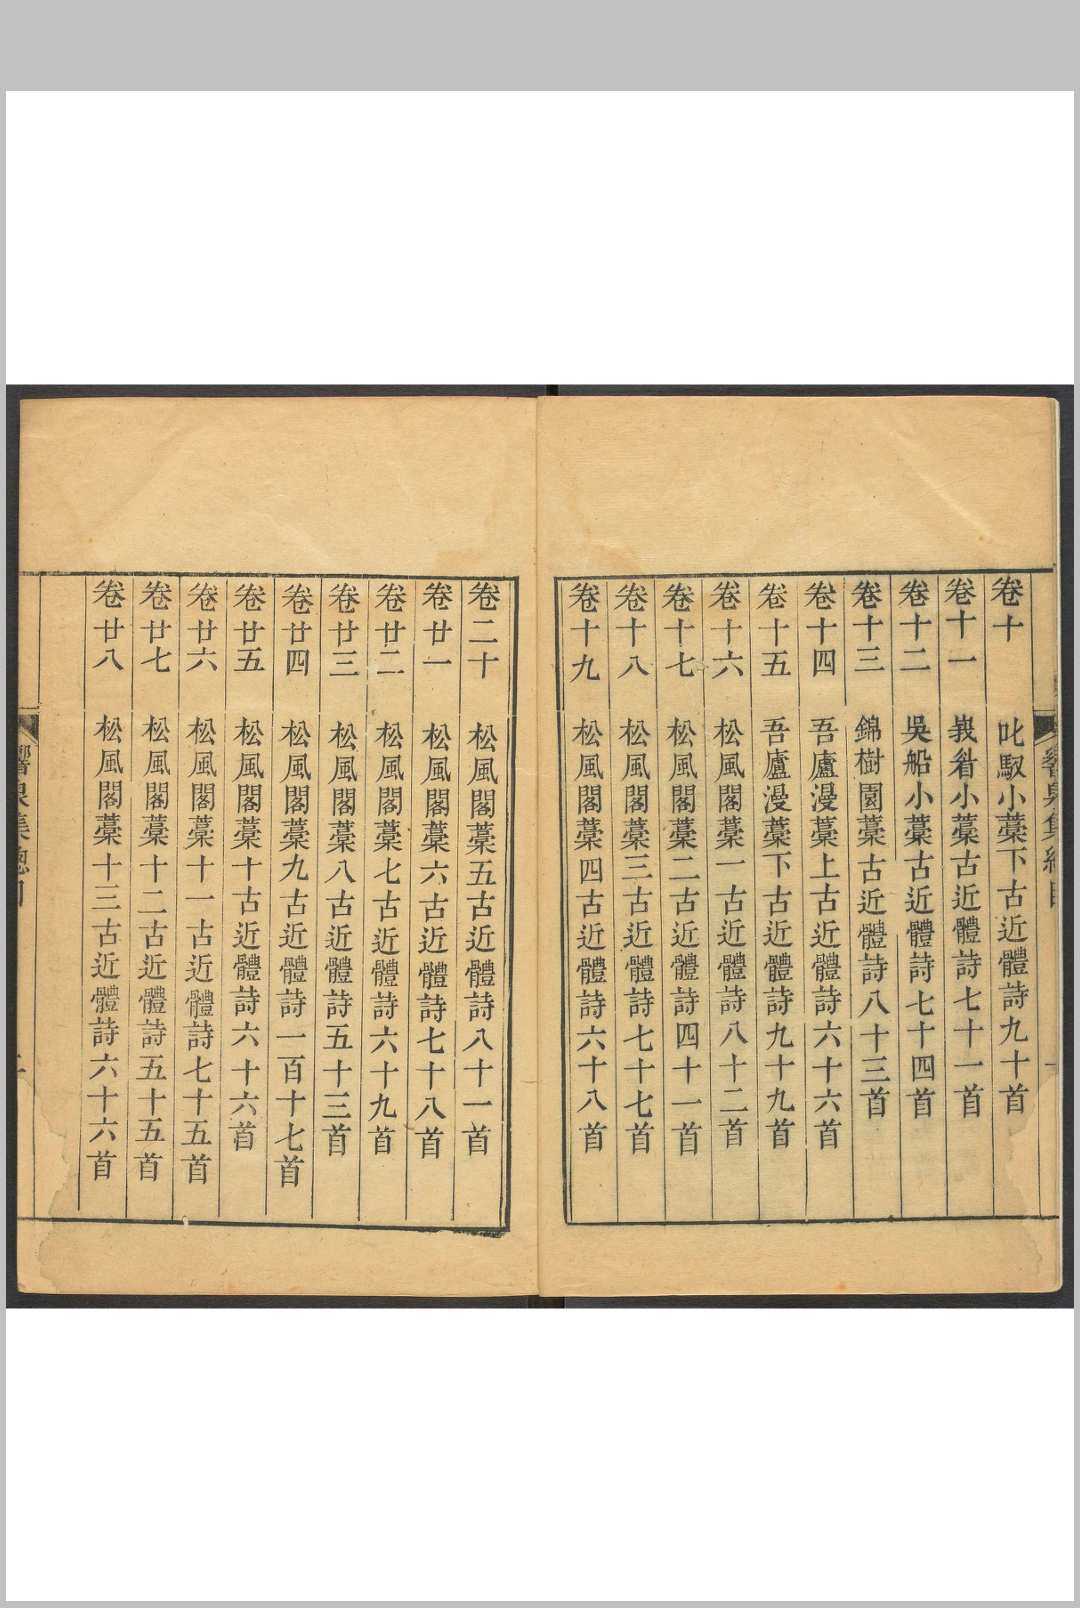 卷十 叱馭小藁下古近體詩九十首
卷十一 峩眉小藁古近體詩七十一首
卷十二 吳船小藁古近體詩七十四首
卷十三 錦樹園藁古近體詩八十三首
卷十四 吾廬漫藁上古近體詩六十六首
卷十五 吾廬漫藁下古近體詩九十九首
卷十六 松風閣藁一古近體詩八十二首
卷十七 松風閣藁二古近體詩四十一首
卷十八 松風閣藁三古近體詩七十七首
卷十九 松風閣藁四古近體詩六十八首
卷二十 松風閣藁五古近體詩八十一首
卷廿一 松風閣藁六古近體詩七十八首
卷廿二 松風閣藁七古近體詩六十九首
卷廿三 松風閣藁八古近體詩五十三首
卷廿四 松風閣藁九古近體詩一百十七首
卷廿五 松風閣藁十古近體詩六十六首
卷廿六 松風閣藁十一古近體詩七十五首
卷廿七 松風閣藁十二古近體詩五十五首
卷廿八 松風閣藁十三古近體詩六十六首
響泉集總目